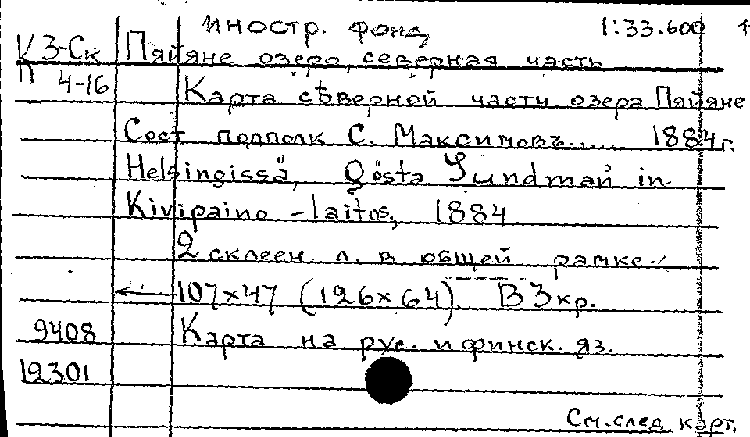 иностр. фонд 1:33.600
К 3-Ск Пяйяне озеро, северная часть
П 4-16 Карта сѣверной части озера Пяйяне
Сост подполк С. Максимовъ..... 1884 г.
Helsingissä, Gösta Sundman in
Kivipaino-laitos, 1884
2 склеен л. в общей рамке
107x47 (126x64) В 3 кр.
9408 Карта на рус. и финск. яз.
12301
См. след карт.